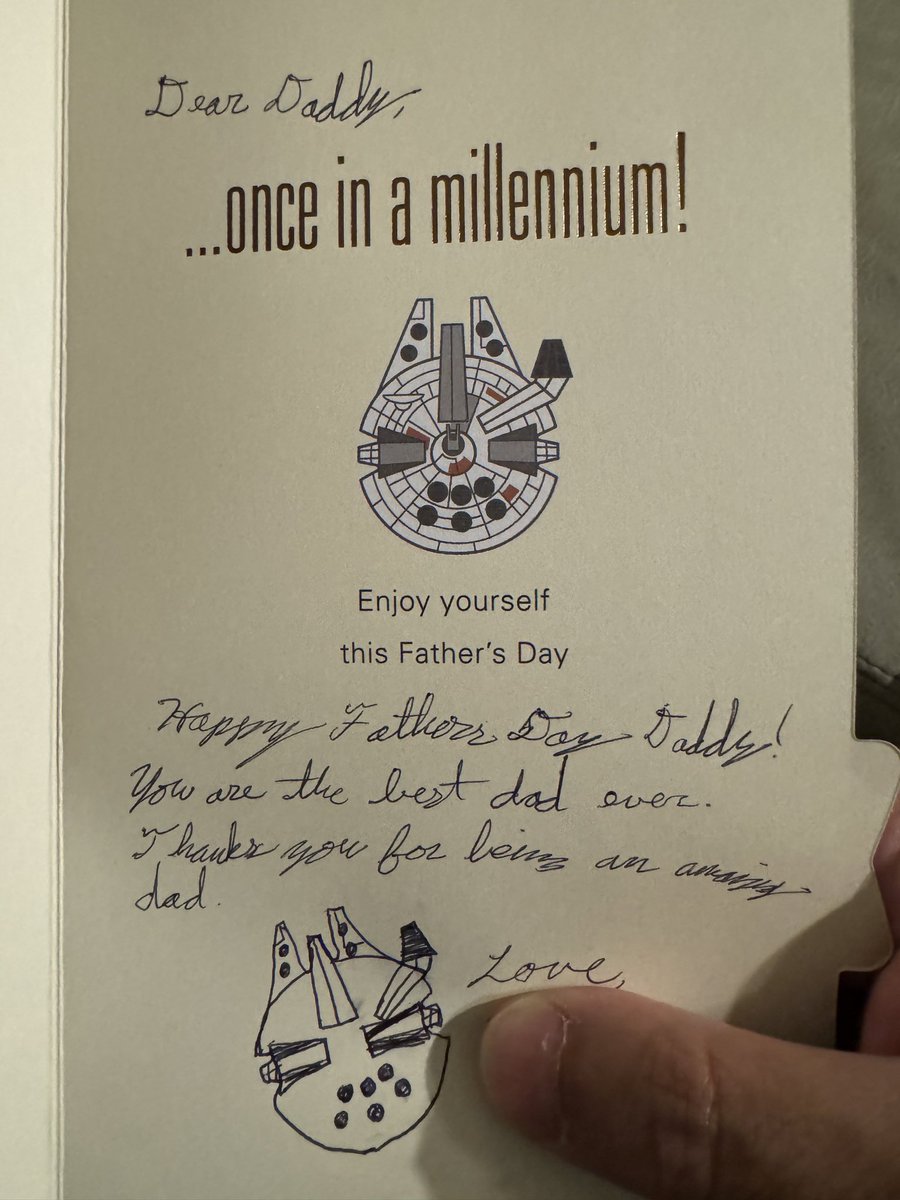 Dear Daddy,
...once in a millennium!
Enjoy yourself
this Father's Day
Happy Fathers Day Daddy!
You are the best dad ever.
Thanks you for being an amazing
dad.
Love,